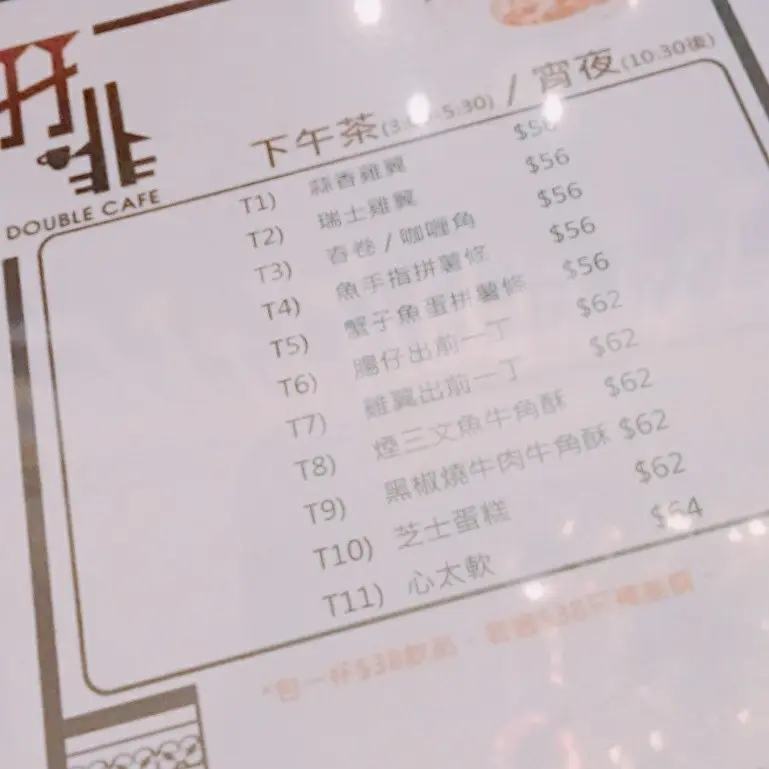 DOUBLE CAFE
下午茶 / 宵夜(10:30後)
T1) 蒜香雞翼
T2) 瑞士雞翼 $56
T3) 春卷/咖喱角 $56
T4) 魚手指拼薯條 $56
T5) 蟹子魚蛋拼薯條 $56
T6) 腸仔出前一丁 $62
T7) 雞翼出前一丁 $62
T8) 煙三文魚牛角酥 $62
T9) 黑椒燒牛肉牛角酥 $62
T10) 芝士蛋糕 $62
T11) 心太軟 $64
*包一杯$38飲品